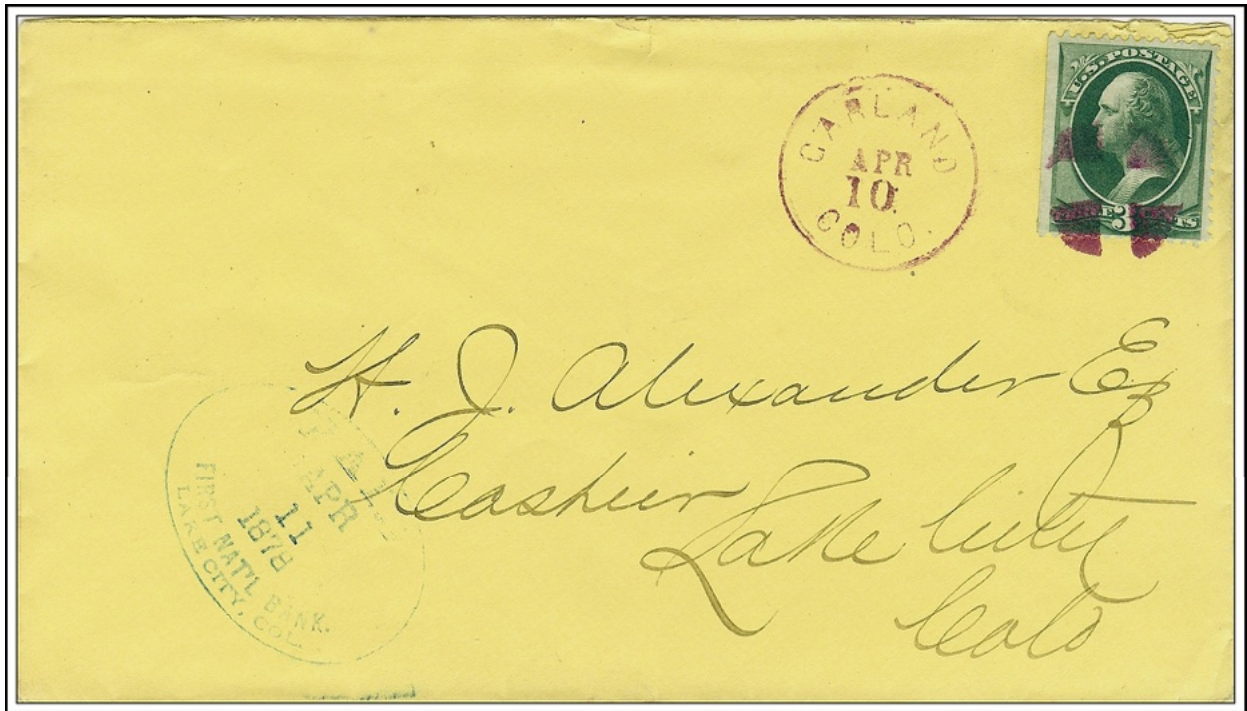 U.S. POSTAGE
THREE 3 CENTS
GARLAND
APR
10
COLO.
H. J. Alexander Esq
Cashier
Lake City
Colo
PAID
APR
11
1878
FIRST NAT'L BANK.
LAKE CITY, COL.